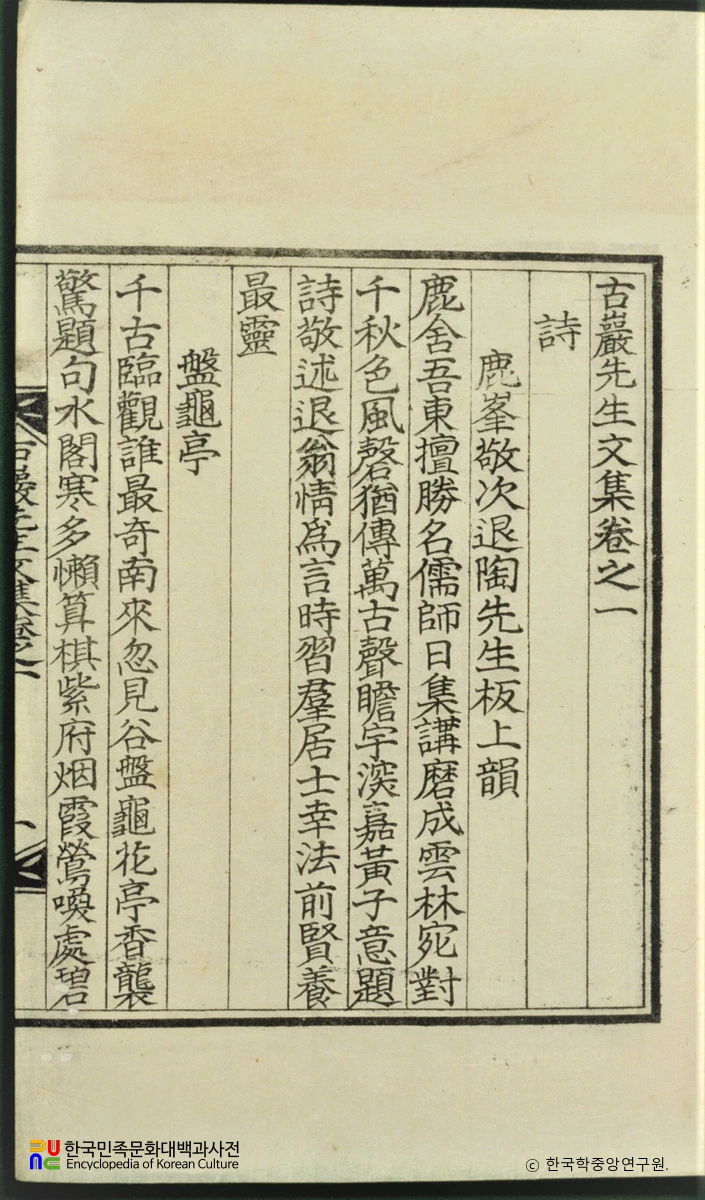 古巖先生文集卷之一
詩
鹿峯敬次退陶先生板上韻
鹿舍吾東擅勝名儒師日集講磨成雲林宛對
千秋色風磬猶傳萬古聲瞻宇深嘉黃子意題
詩敬述退翁情爲言時習羣居士幸法前賢養
最靈
盤龜亭
千古臨觀誰最奇南來忽見谷盤龜花亭香襲
驚題句水閣寒多懶算棋紫府烟霞鶯喚處碧
古巖先生文集卷之一
一
한국민족문화대백과사전
Encyclopedia of Korean Culture
ⓒ 한국학중앙연구원.